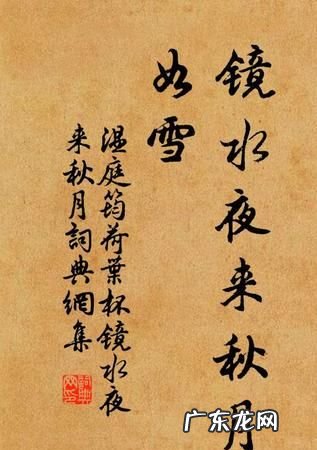 镜水夜来秋月
如雪
温庭筠荷葉杯镜水夜
来秋月詞典網集
广东龙网